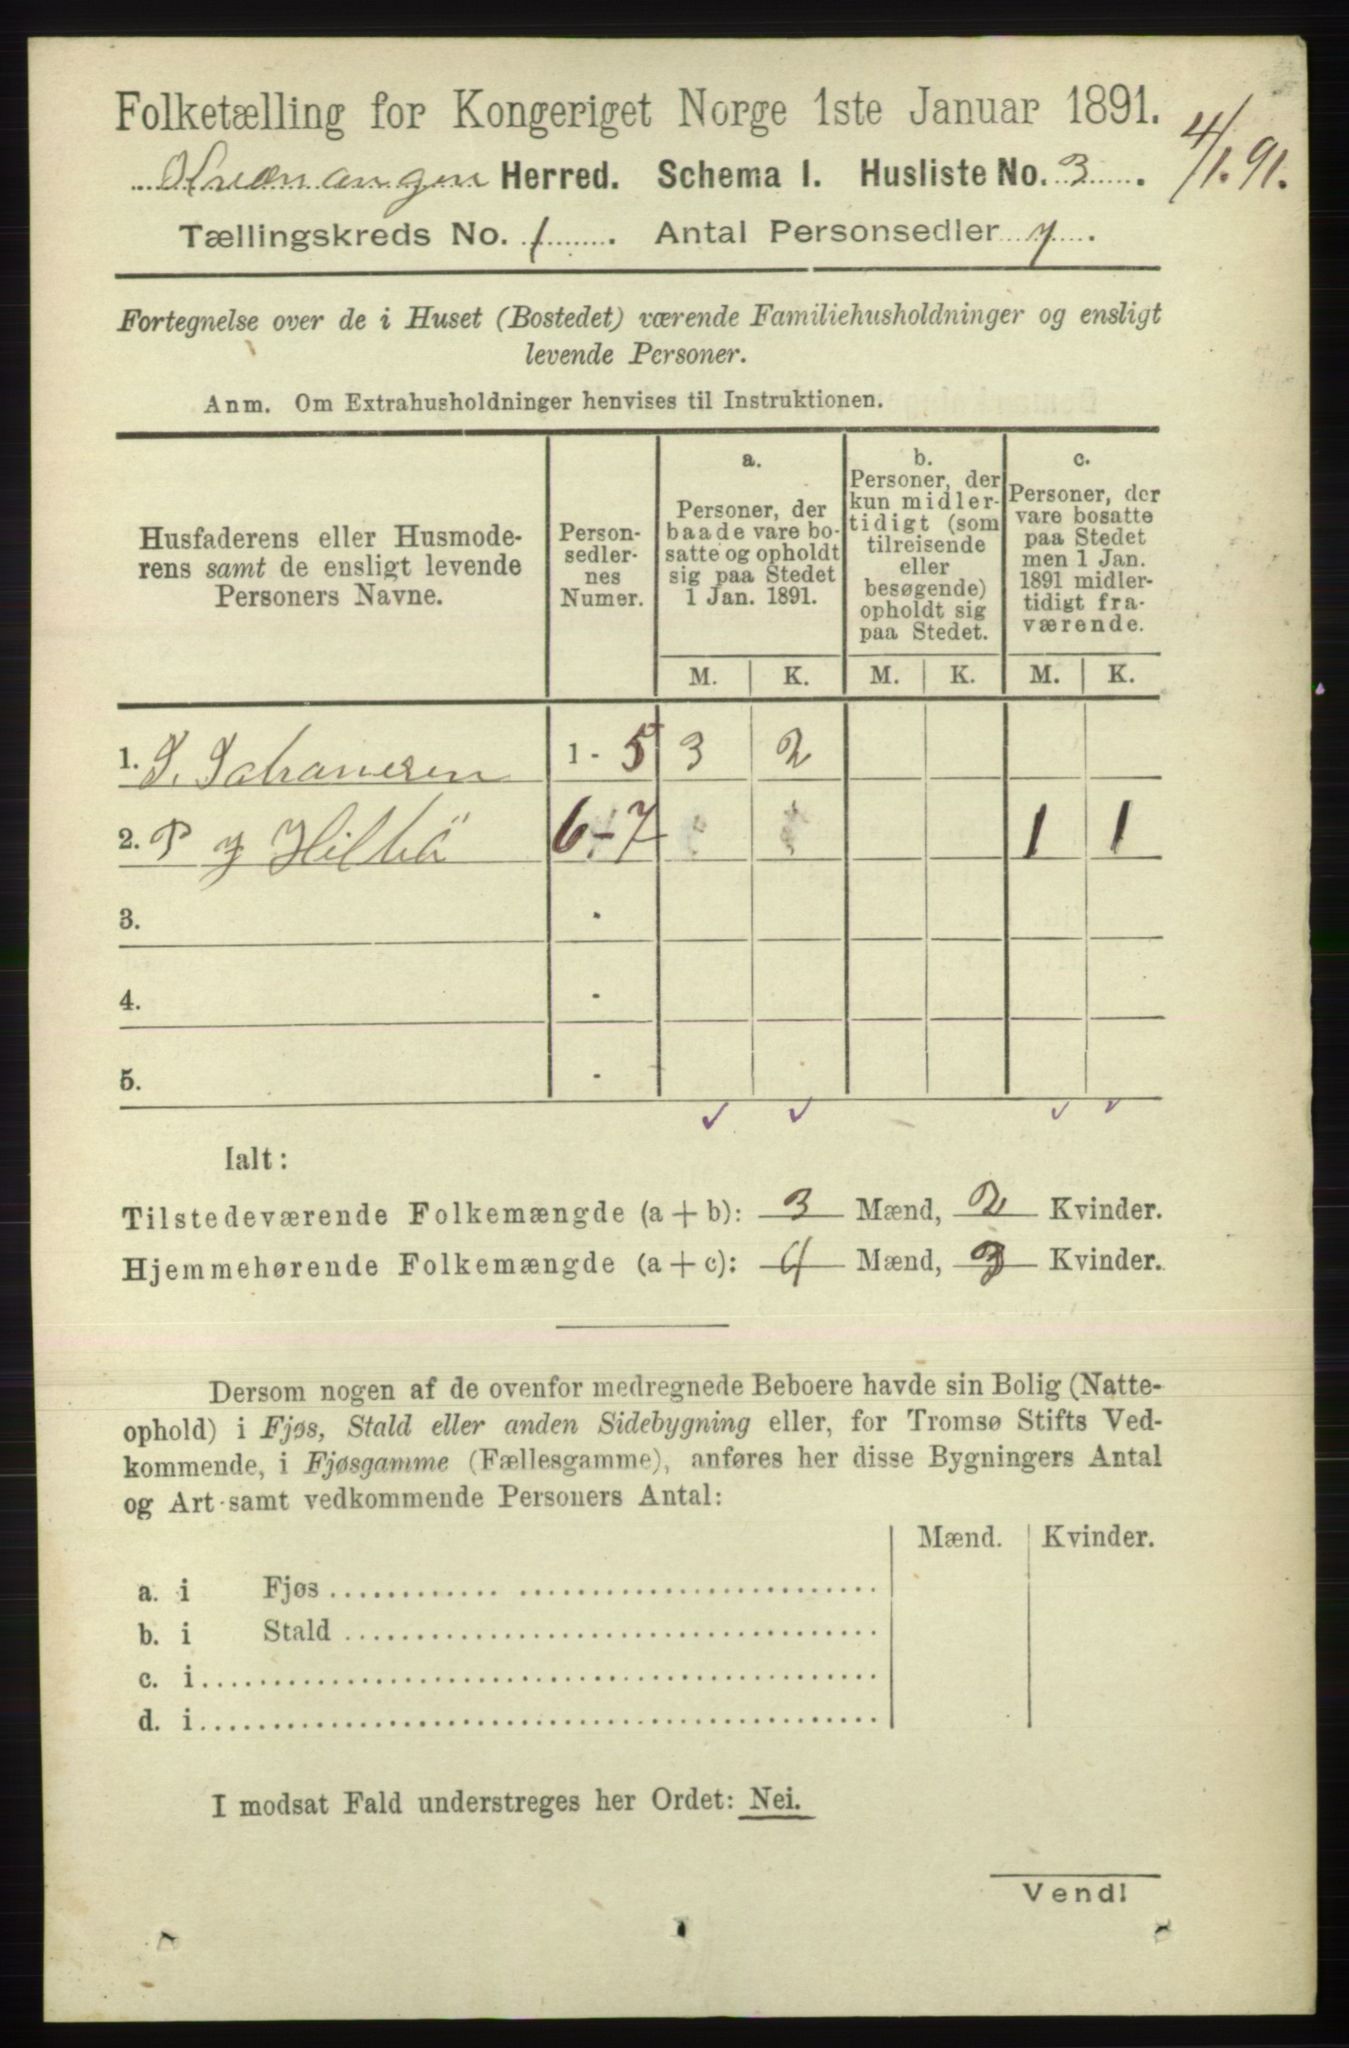 Folketælling for Kongeriget Norge 1ste Januar 1891.
4/1.91.
Kvænangen Herred. Schema I. Husliste No. 3.
Tællingskreds No. 1. Antal Personsedler 7.
Fortegnelse over de i Huset (Bostedet) værende Familiehusholdninger og ensligt
levende Personer.
Anm. Om Extrahusholdninger henvises til Instruktionen.
Husfaderens eller Husmode-
rens samt de ensligt levende
Personers Navne.
Person-
sedler-
nes
Numer.
a.
Personer, der
baade vare bo-
satte og opholdt
sig paa Stedet
1 Jan. 1891.
b.
Personer, der
kun midler-
tidigt (som
tilreisende
eller
besøgende)
opholdt sig
paa Stedet.
c.
Personer, der
vare bosatte
paa Stedet
men 1 Jan.
1891 midler-
tidigt fra-
værende.
M. K. M. K. M. K.
1. Johannesen 1 - 5 3 2
2. P 6-7 1 1
3. -
4. -
5. -
Ialt:
Tilstedeværende Folkemængde (a + b): 3 Mænd, 2 Kvinder.
Hjemmehørende Folkemængde (a + c): 4 Mænd, 3 Kvinder.
Dersom nogen af de ovenfor medregnede Beboere havde sin Bolig (Natte-
ophold) i Fjøs, Stald eller anden Sidebygning eller, for Tromsø Stifts Ved-
kommende, i Fjøsgamme (Fællesgamme), anføres her disse Bygningers Antal
og Art samt vedkommende Personers Antal:
Mænd. Kvinder.
a. i Fjøs
b. i Stald
c. i
d. i
I modsat Fald understreges her Ordet: Nei.
Vend!